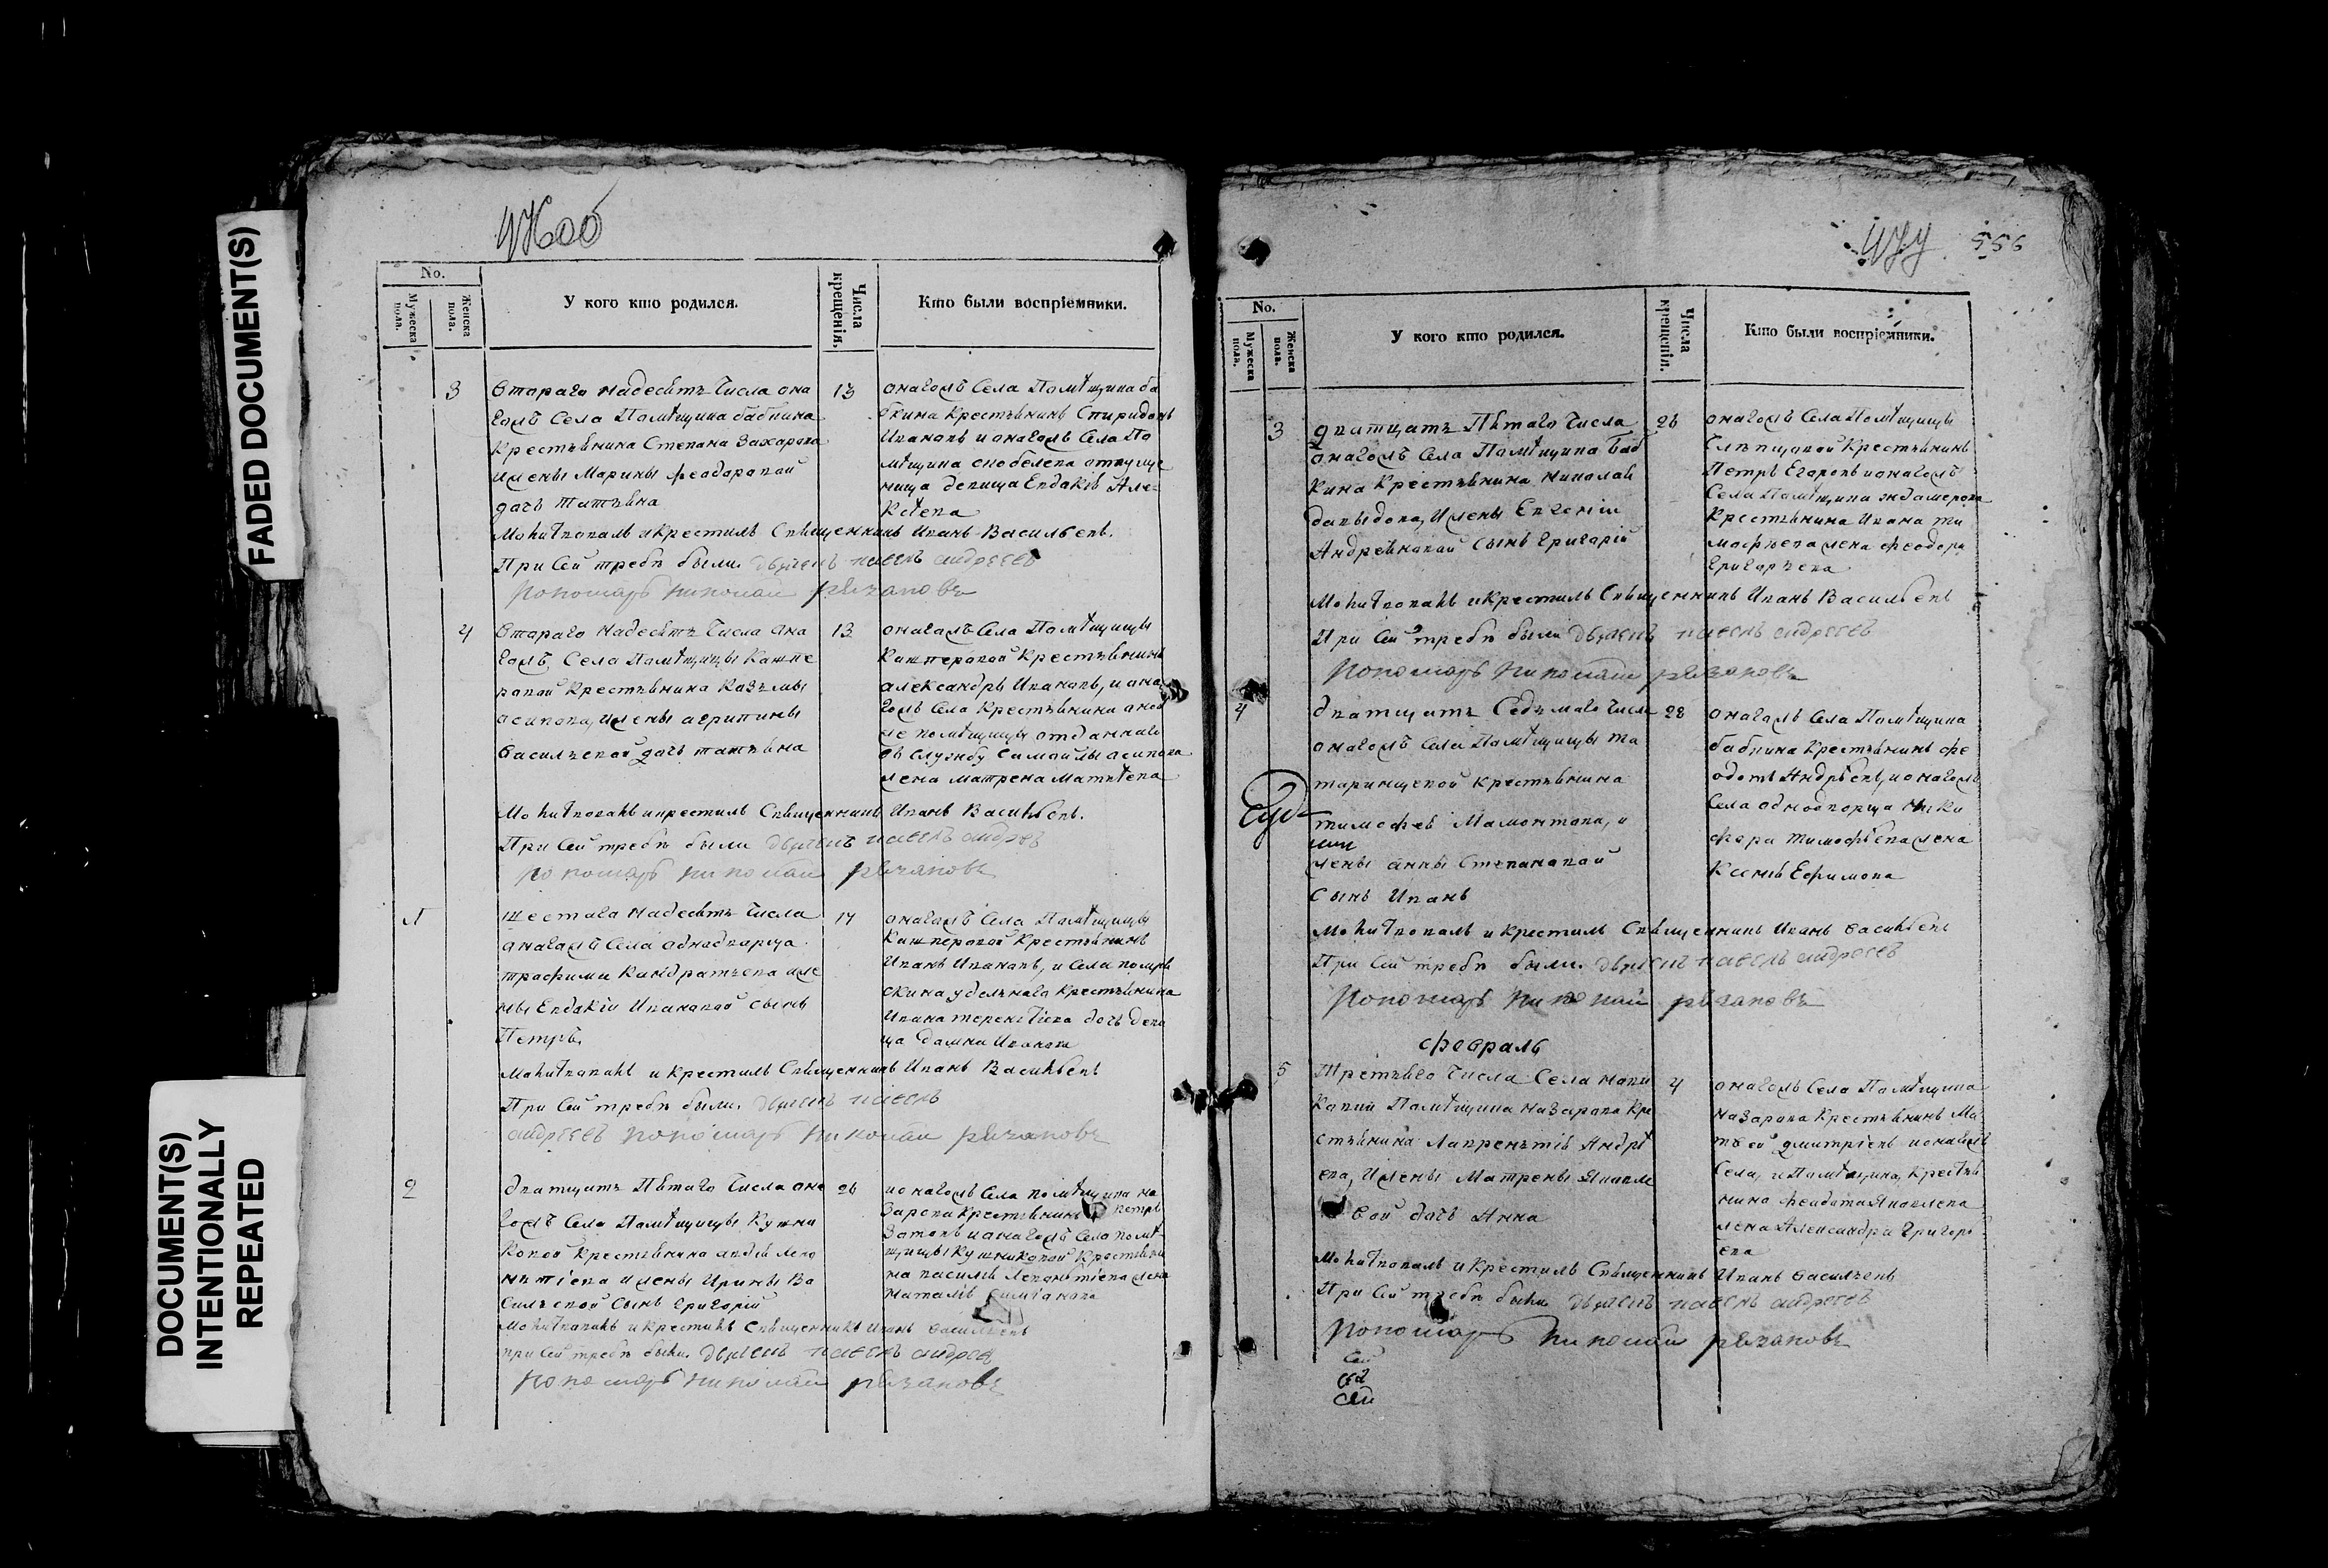 FADED DOCUMENT(S)
DOCUMENT(S)
INTENTIONALLY
REPEATED
No.
Мужеска пола.
Женска пола.
У кого кто родился.
Числа крещенія.
Кто были воспріемники.
3
Втараго надесять Числа она
13
гожъ Села Помѣщика бабкина
Крестьянина Степана Захарова
Ижены Марины Феадаравай
дачь Татьяна
онагожъ Села Помѣщика ба
бкина Крестьянинъ Спиридонъ
Ивановъ и онагожъ Села По
мѣщика
девица Евдакія Але
Ксѣева
Молитвовалъ икрестилъ Священникъ Иванъ Васильевъ.
При сей требѣ были. дьяконъ павелъ андреевъ
Пономарь николай рязановъ
4
Втараго надесять Числа она
13
гожъ Села Памѣщицы Кашпе
равай Крестьянина Казьмы
асипова, ижены агрипины
Васильевой дачь татьяна
онагожъ Села Памѣщицы
Кашперовой Крестьянинъ
александръ Ивановъ, и она
гожъ Села Крестьянина аной
же помѣщицы отданнаго
въ службу Самойлы асипова
жена матрена матвѣева
Молитвовалъ икрестилъ Священникъ Иванъ Васильевъ.
При сей требѣ были дьяконъ павелъ андрѣевъ
пономарь николай рязановъ
1
Шестаго надесять Числа
17
анагожъ Села аднадварца
трафима Кандратьева иже
ны Евдакіи Иванавай сынъ
Петръ.
онагожъ Села Памѣщицы
Кашперовой Крестьянинъ
Иванъ Ивановъ, и Села
удельнаго Крестьянина
Ивана терентіева дочь деви
ца Домна Иванова
Молитвовалъ и крестилъ Священникъ Иванъ Васильевъ
При сей требѣ были. дьяконъ павелъ
андреевъ пономарь николай рязановъ
2
дватцать Пятаго Числа она
26
гожъ Села Памѣщицы Кушни
ковой Крестьянина авдѣя лео
нтіева ижены Ирины Ва
сильевой сынъ григорій
ионагожъ Села помѣщика на
зарова Крестьянинъ петръ
Зотовъ ианагожъ Села помѣ
щицы Кушниковой Крестьяни
на василія Леонтіева жена
Наталія
Молитвовалъ и крестилъ Священникъ иванъ васильевъ
при сей требѣ были. дьяконъ павелъ андреевъ
пономарь николай рязановъ
556
No.
Мужеска пола.
Женска пола.
У кого кто родился.
Числа крещенія.
Кто были воспріемники.
3
дватцать Пятаго Числа
26
онагожъ Села Памѣщика Баб
кина Крестьянина николая
давыдова, Ижены Евгеніи
Андреяновай сынъ Григорій
онагожъ Села Помѣщицы
Крестьянинъ
Петръ Егоровъ ионагожъ
Села Помѣщика
Крестьянина Ивана ти
мофѣева жена феодора
Григорьева
Молитвовалъ икрестилъ Священникъ Иванъ Васильевъ
При сей требѣ были дьяконъ павелъ андреевъ
Пономарь николай рязановъ
4
дватцать Седьмаго Числа
28
онагожъ Села Памѣщицы та
таринцевой крестьянина
тимофея Мамонтова, и
жены анны Степановой
сынъ Иванъ
онагожъ Села Памѣщика
бабкина Крестьянинъ фе
одотъ Андрѣевъ, ионагожъ
Села однодворца Ники
фора Тимофѣева жена
Ксенія Ефимова
Молитвовалъ и крестилъ Священникъ Иванъ васильевъ
При сей требѣ были. дьяконъ павелъ андреевъ
Пономарь николай рязановъ
февраль
5
Третьяго Числа Села
4
Помѣщика назарова Кре
стьянина Лаврентія Андрѣ
ева, Ижены Матрены Яковле
вой дочь Анна
онагожъ Села Памѣщика
назарова Крестьянинъ Ма
твѣй дмитріевъ ионагожъ
Села, и Памѣщика, Крестья
нина феодота Яковлева
жена Александра Григорь
ева
Молитвовалъ и Крестилъ Священникъ Иванъ васильевъ
При сей требѣ были дьяконъ павелъ андреевъ
пономарь николай рязановъ
Сей
Сей